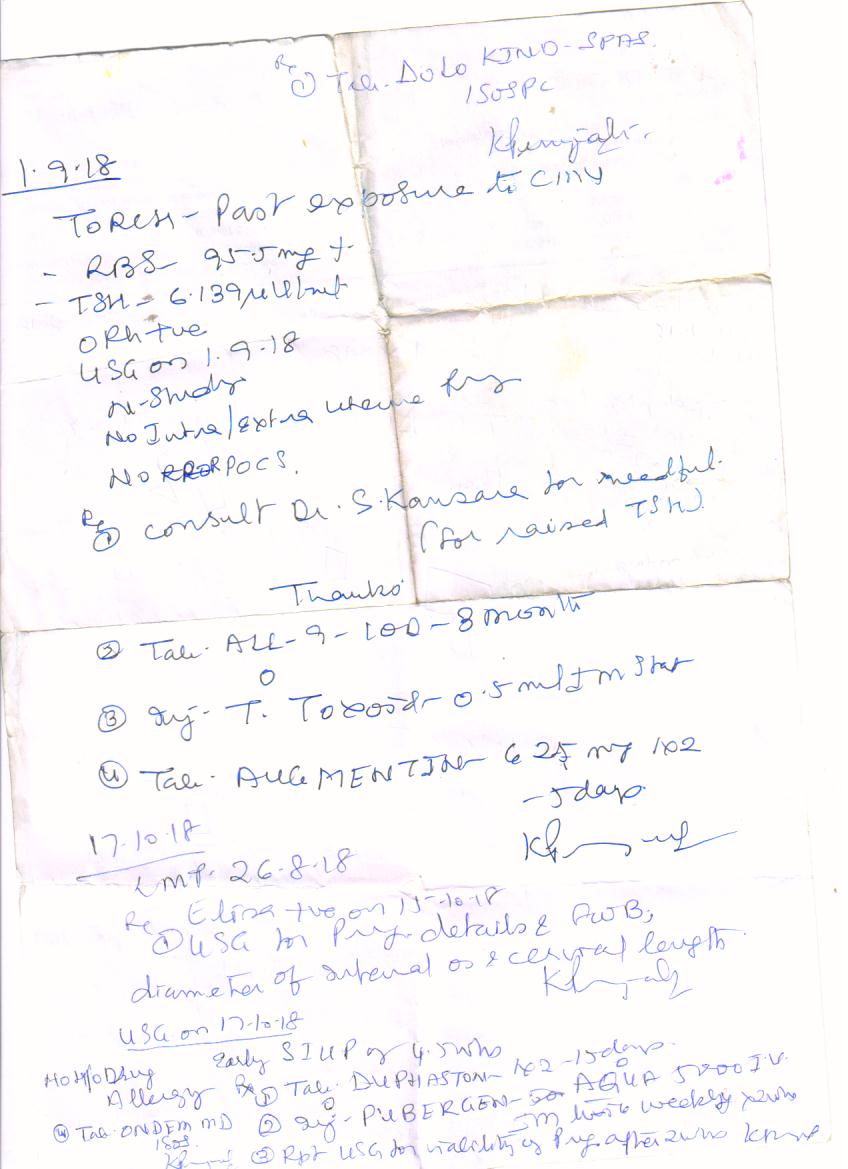 Rx ① Tab. DOLO KIND-SPAS.
1SOSPC
1.9.18
TORCH - Past exposure to CMV
- RBS - 95.5mg
- TSH - 6.139 µIU/ml
O Rh +ve
USG on 1.9.18
N-Study
No Intra/extra uterine Preg
No RPOCS.
Rx ① consult Dr. S. Kansare for needful.
(for raised TSH)
Thanks
② Tab. ALL-9-10D-3 month
③ Inj. T. Toxoid - 0.5ml IM Stat
④ Tab. AUGMENTIN 625 mg 1x2
- 5 days
17.10.18
LMP. 26.8.18
Elisa +ve on 15.10.18
Rx ① USG for Preg. details & FWB,
diameter of internal os & cervical length
USG on 17.10.18
Early SIUP of 4.5wks
No H/o Drug
Allergy Rx ① Tab. DUPHASTON - 1x2 - 15days.
④ Tab. ONDEM MD ② Inj. PUBERGEN - AQUA 5000 I.U.
1SOS. IM weekly x2wks
③ Rpt USG for viability of Preg after 2wks